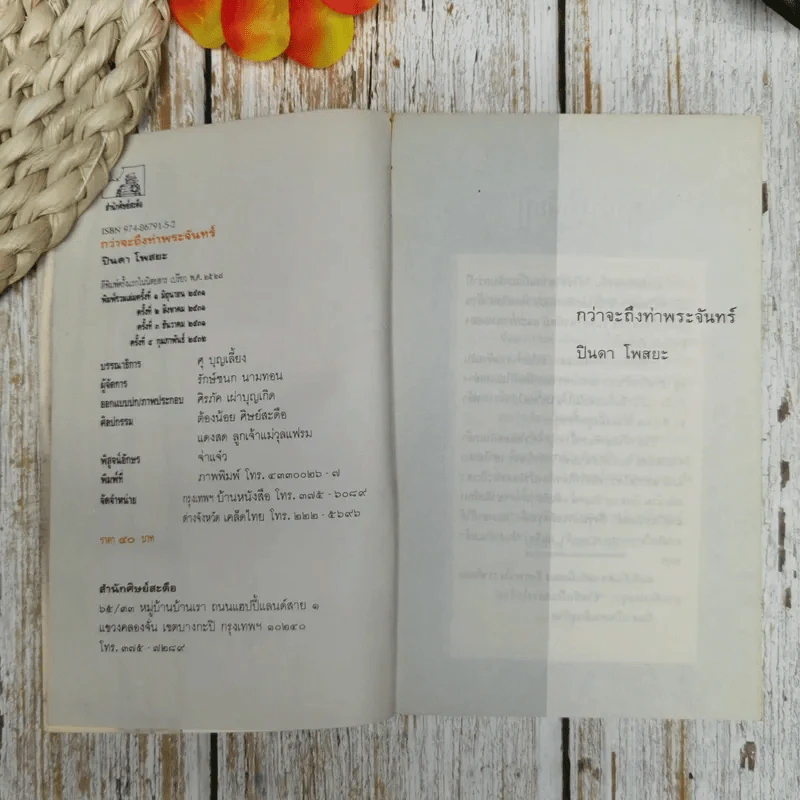 สำนักศิษย์สะดือ
ISBN 974-86791-5-2
กว่าจะถึงท่าพระจันทร์
ปินดา โพสยะ
ตีพิมพ์ครั้งแรกในนิตยสาร เปรียว พ.ศ. ๒๕๒๘
พิมพ์รวมเล่มครั้งที่ ๑ มิถุนายน ๒๕๓๑
ครั้งที่ ๒ สิงหาคม ๒๕๓๑
ครั้งที่ ๓ ธันวาคม ๒๕๓๑
ครั้งที่ ๔ กุมภาพันธ์ ๒๕๓๒
บรรณาธิการ ศุ บุญเลี้ยง
ผู้จัดการ รักษ์ชนก นามทอน
ออกแบบปก/ภาพประกอบ ศิรภัค เผ่าบุญเกิด
ศิลปกรรม ต้องน้อย ศิษย์สะดือ
แดงสด ลูกเจ้าแม่วุลแฟรม
พิสูจน์อักษร จ๋าแจ๋ว
พิมพ์ที่ ภาพพิมพ์ โทร. ๔๓๓๐๐๒๖-๗
จัดจำหน่าย กรุงเทพฯ บ้านหนังสือ โทร. ๓๗๕-๖๐๘๙
ต่างจังหวัด เคล็ดไทย โทร. ๒๒๒-๕๖๙๖
ราคา ๔๐ บาท
สำนักศิษย์สะดือ
๖๕/๓๓ หมู่บ้านบ้านเรา ถนนแฮปปี้แลนด์สาย ๑
แขวงคลองจั่น เขตบางกะปิ กรุงเทพฯ ๑๐๒๔๐
โทร. ๓๗๕-๗๒๘๙
กว่าจะถึงท่าพระจันทร์
ปินดา โพสยะ